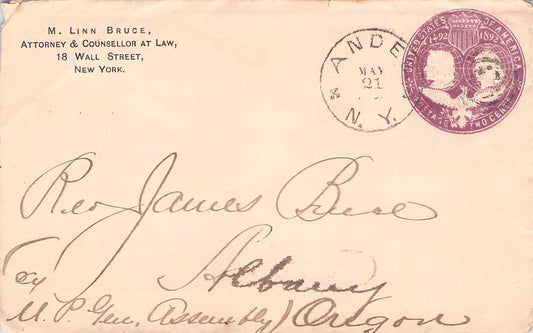 M. Linn Bruce,
Attorney & Counsellor at Law,
18 Wall Street,
New York.
ANDE
MAY
21
N. Y.
UNITED STATES OF AMERICA
1492 1892
POSTAGE TWO CENTS
Rev James
Albany
Oregon
U. P. Gen. Assembly)